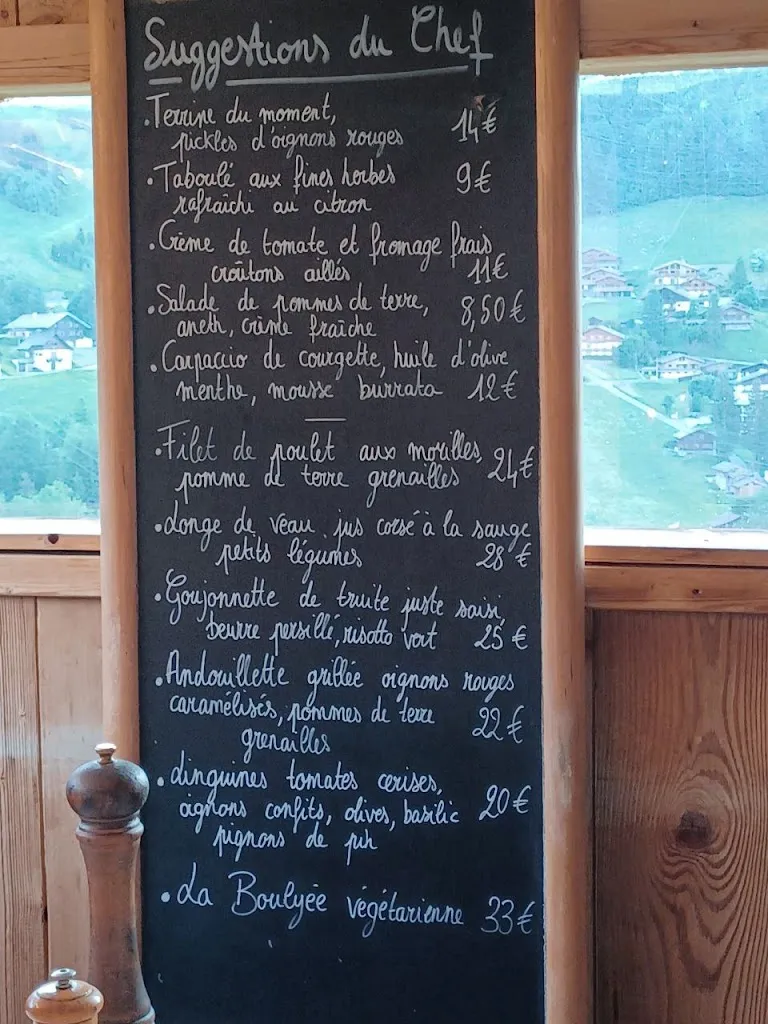 Suggestions du Chef
• Terrine du moment,
pickles d'oignons rouges 14€
• Taboulé aux fines herbes 9€
rafraîchi au citron
• Crème de tomate et fromage frais
croûtons aillés 11€
• Salade de pommes de terre, 8,50€
aneth, crème fraîche
• Carpaccio de courgette, huile d'olive
menthe, mousse burrata 12€
• Filet de poulet aux morilles, 24€
pomme de terre grenailles
• Longe de veau jus corsé à la sauge
petits légumes 28€
• Goujonnette de truite juste saisi,
beurre persillé, risotto vert 25€
• Andouillette grillée oignons rouges
caramélisés, pommes de terre 22€
grenailles
• Linguines tomates cerises,
oignons confits, olives, basilic 20€
pignons de pin
• La Boulyée végétarienne 33€